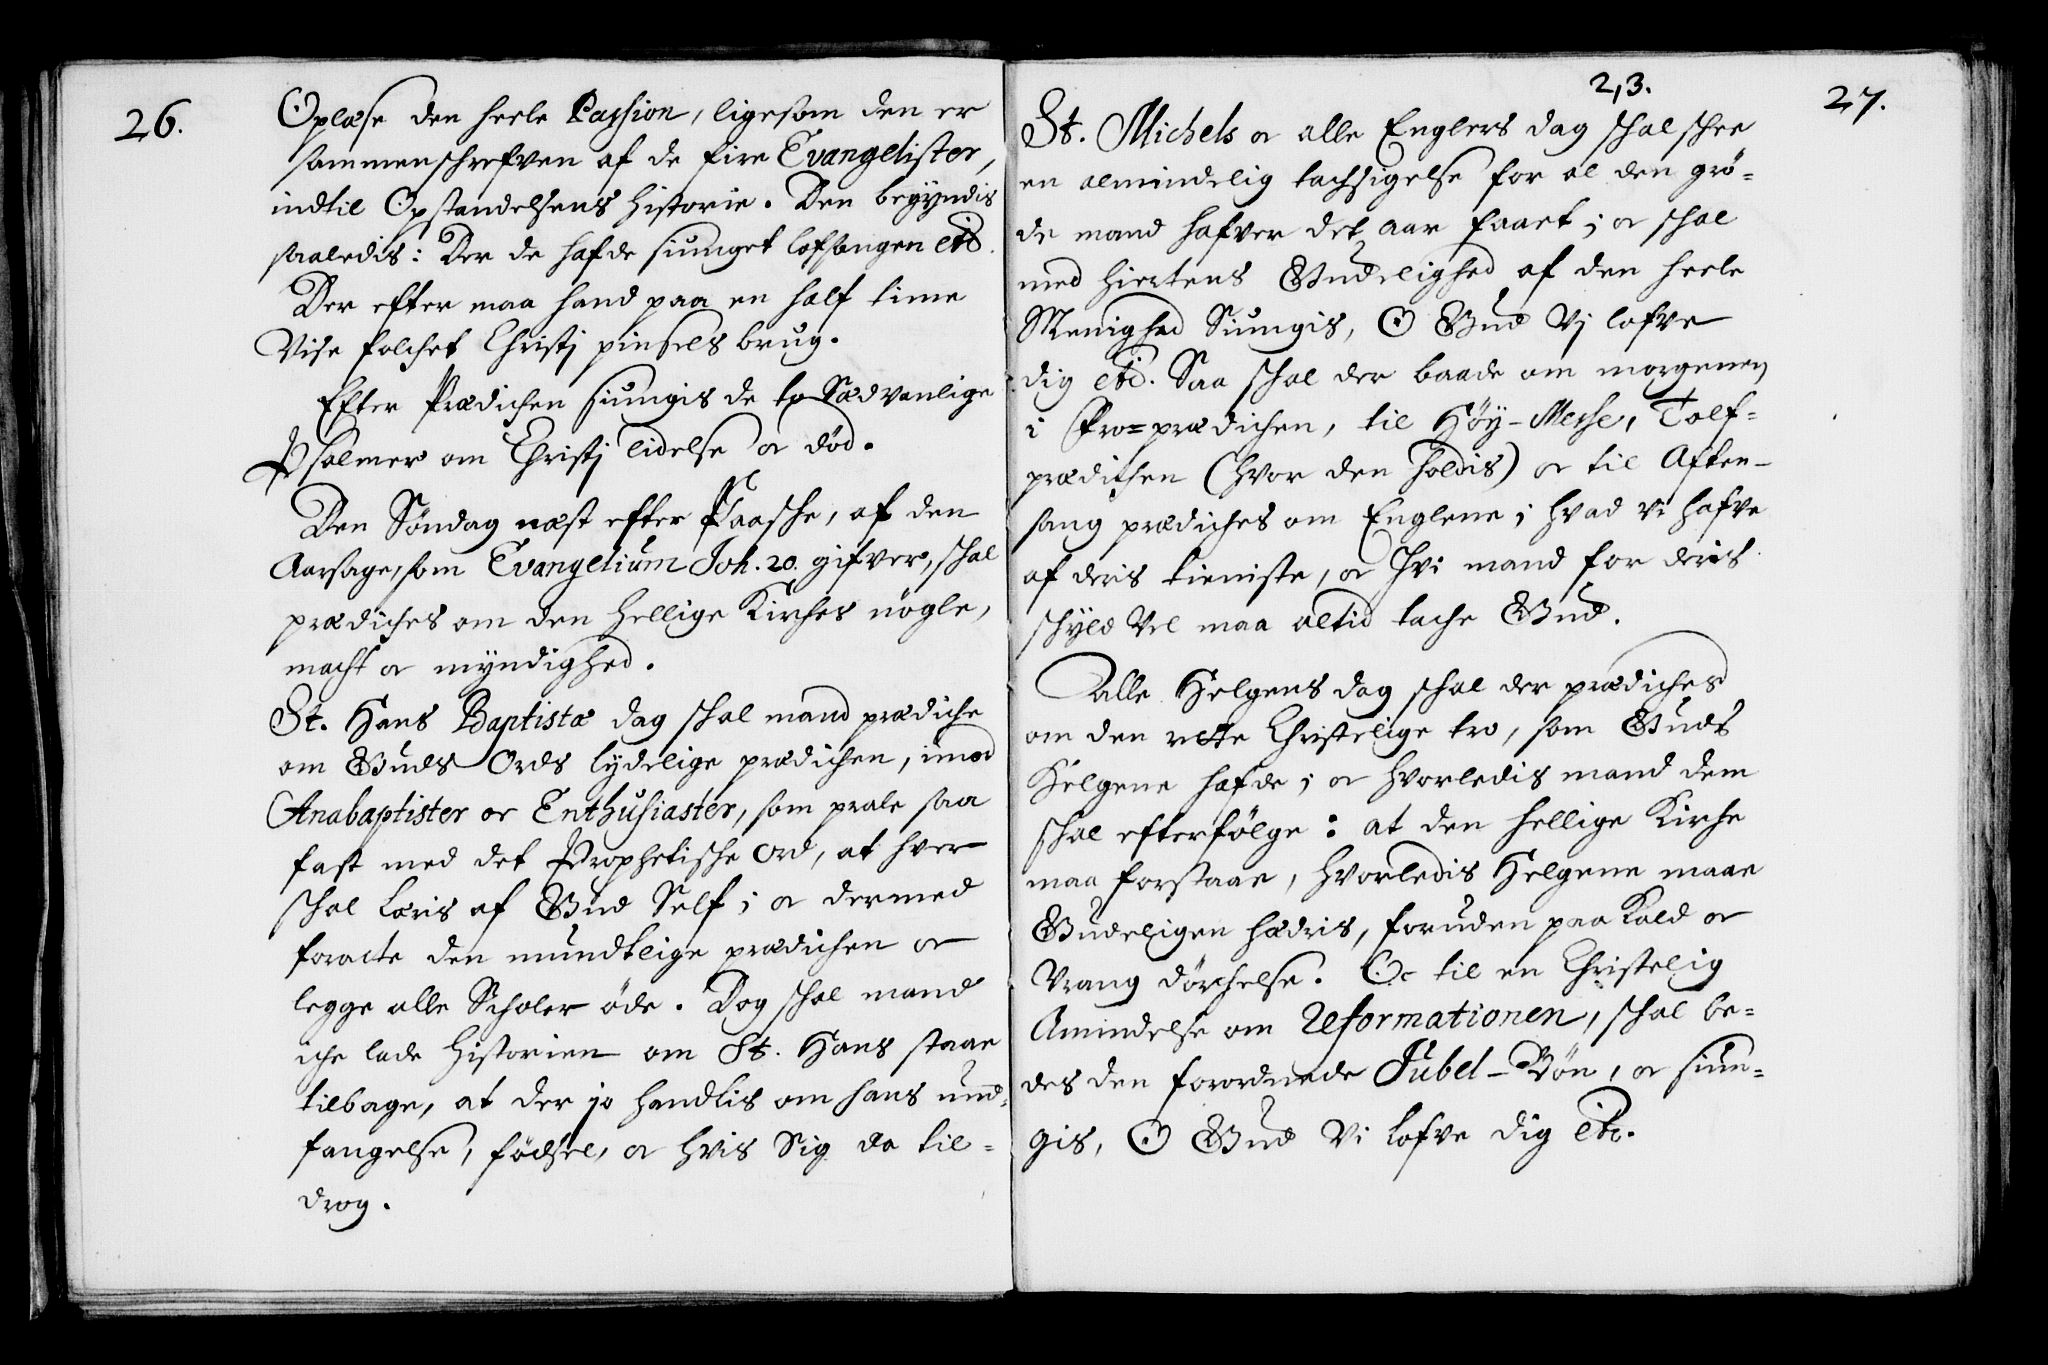 26.
Oplæse den heele Passion, ligesom den er
sammenschrefven af de fire Evangelister,
indtil Opstandelsens Historie. Den begyndis
saaledis: Der de hafde siunget lofsangen etc.
Der efter maa hand paa en half time
Vise folchet Christj pinsels brug.
Efter Prædichen siungis de to Sædvanlige
Psalmer om Christj lidelse oc död.
Den Söndag næst efter Paasche, af den
Aarsage, som Evangelium Joh. 20. gifver, schal
prædiches om den hellige Kirches nögle,
macht oc myndighed.
St. Hans Baptistæ dag schal mand prædiche
om Guds Ords lydelige prædichen, imod
Anabaptister oc Enthusiaster, som prale saa
fast med det Prophetische ord, at hver
schal læris af Gud Self; oc dermed
foracte den mundtlige prædichen oc
legge alle Scholer öde. Dog schal mand
iche lade Historien om St. Hans staae
tilbage, at der jo handlis om hans und-
fangelse, födsel, oc hvis Sig da til-
drog.
23.
27.
St. Michels oc alle Englers dag schal schee
en almindelig tachsigelse for al den grö-
de mand hafver det aar faaet; oc schal
med hiertens Gudelighed af den heele
Menighed Siungis, O Gud Vj lofve
dig etc. Saa schal der baade om morgenen
i Fro=prædichen, til Höy-Messe, Tolf-
prædichen (hvor den holdis) oc til Aften-
sang prædiches om Englene; hvad vi hafve
af deris tieniste, oc Hvi mand for deris
schyld Vel maa altid tache Gud.
Alle Helgens dag schal der prædiches
om den rette Christelige tro, som Guds
Helgene hafde; oc hvorledis mand dem
schal efterfölge: at den hellige Kirche
maa forstaae, hvorledis Helgene maae
Gudeligen hædris, foruden paa Kald oc
Vrang dörchelse. Oc til en Christelig
Amindelse om Reformationen, schal be-
des den forordnede Jubel-Bön, oc siun-
gis, O Gud Vi lofve dig etc.